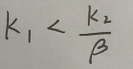 K₁ < K₂/β